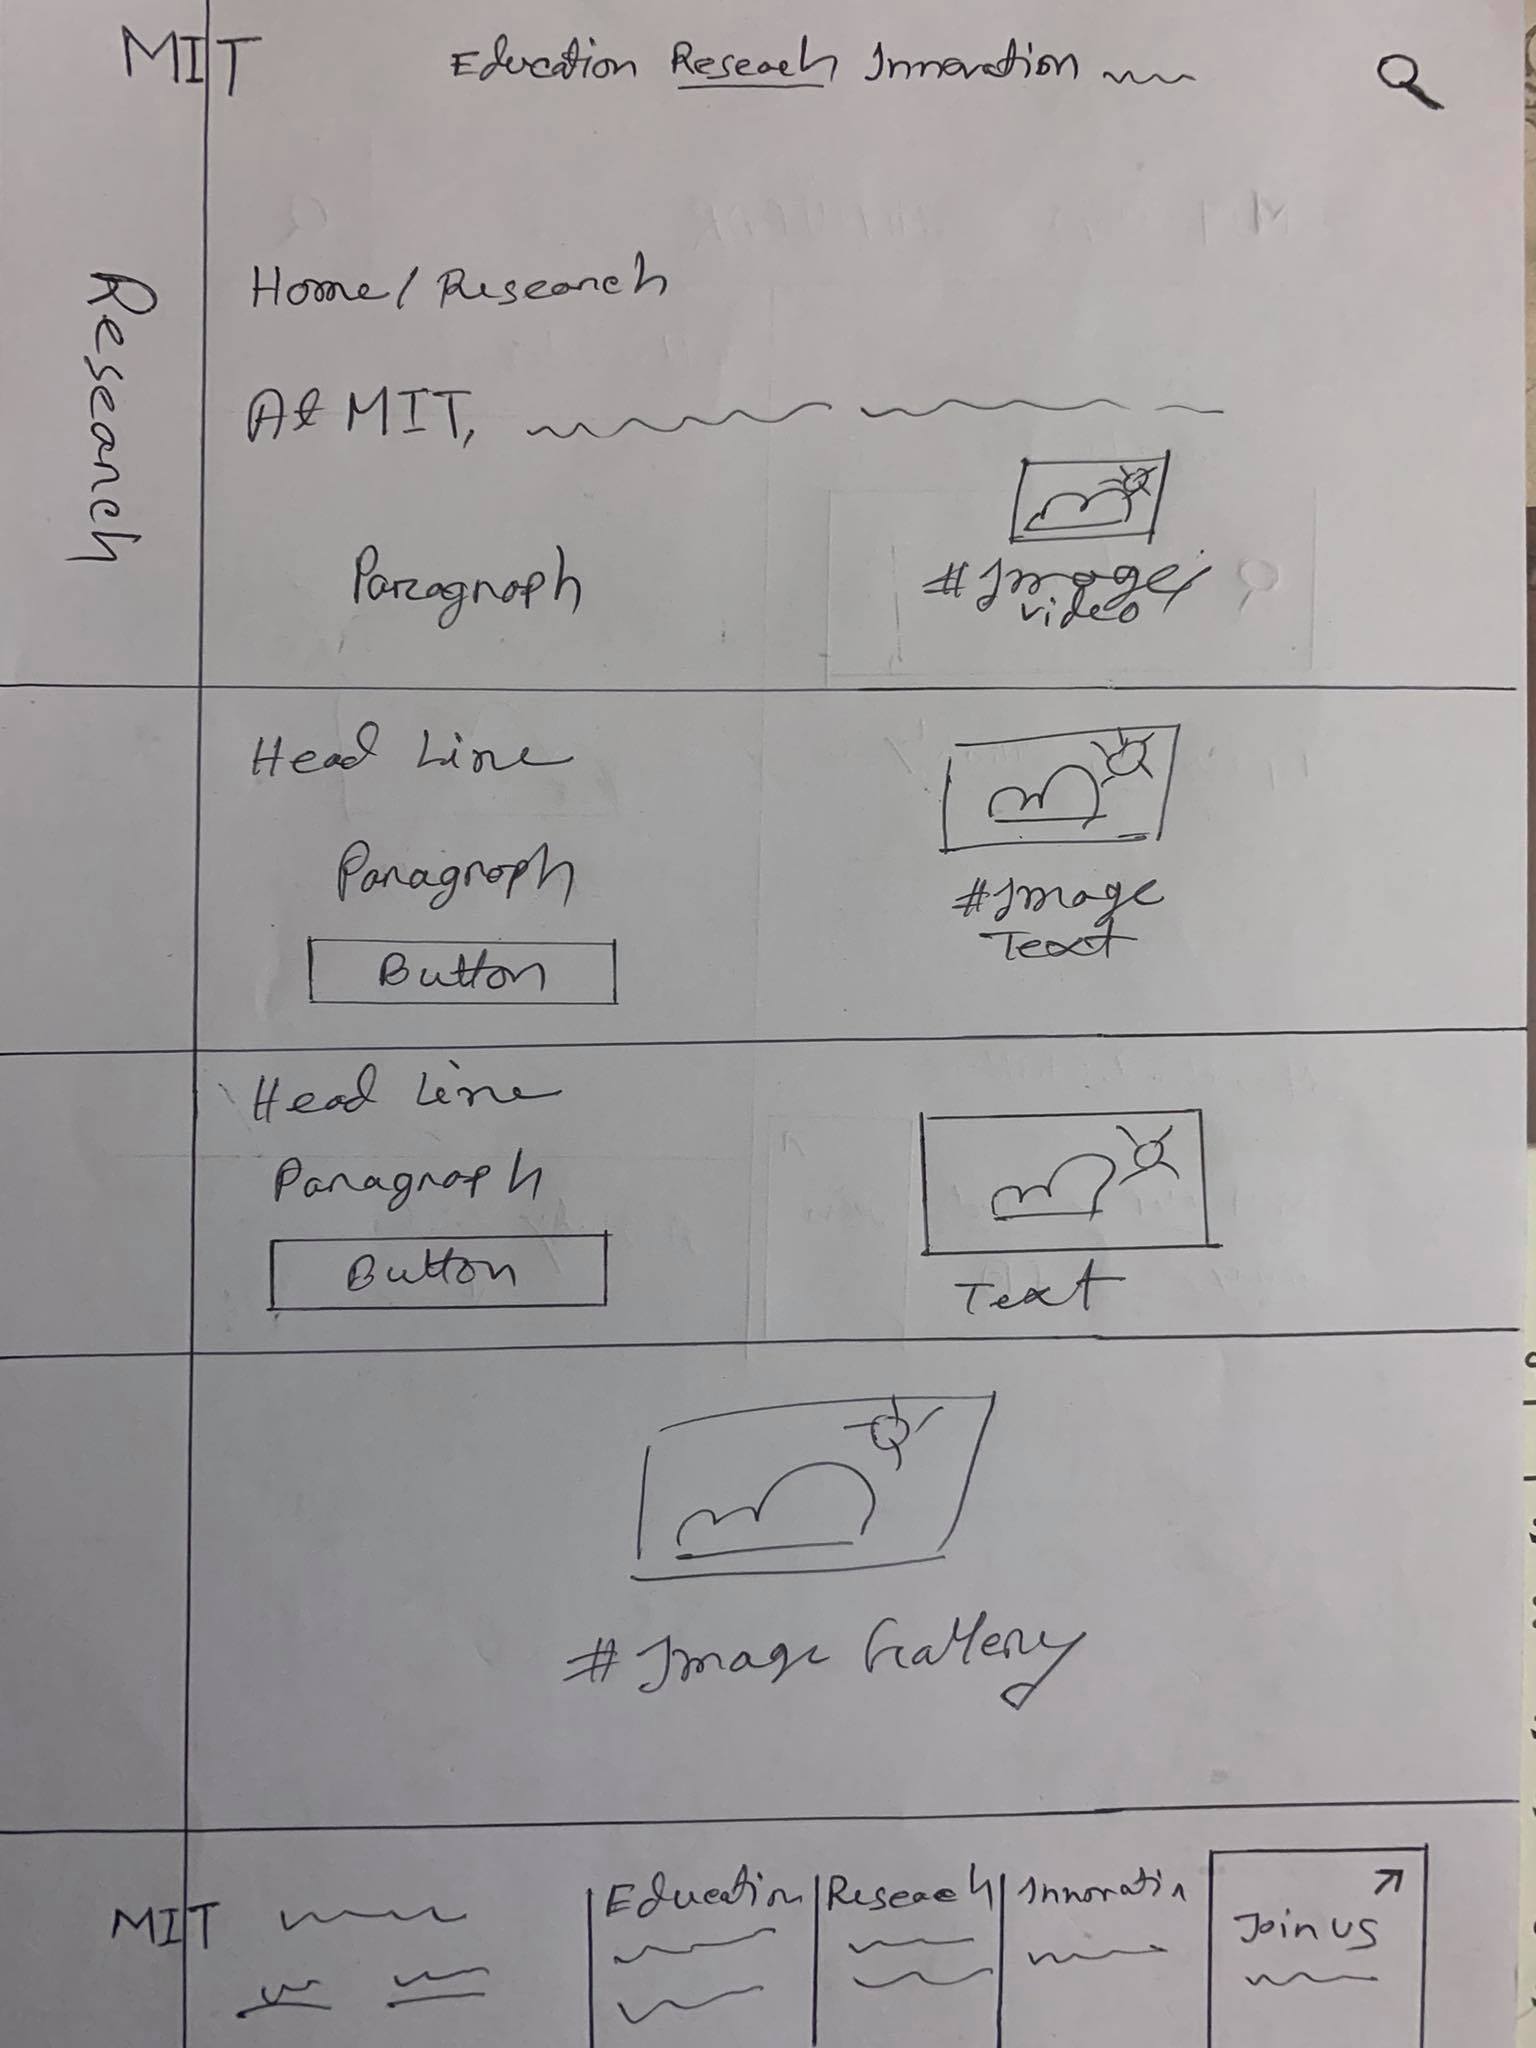 MIT Education Reseach Innovation
Research
Home / Research
At MIT,
Paragraph
#Image,
video
Head Line
Paragraph
Button
#Image
Text
Head Line
Paragraph
Button
Text
# Image Gallery
MIT
Education
Reseach
Innovatin
Join us